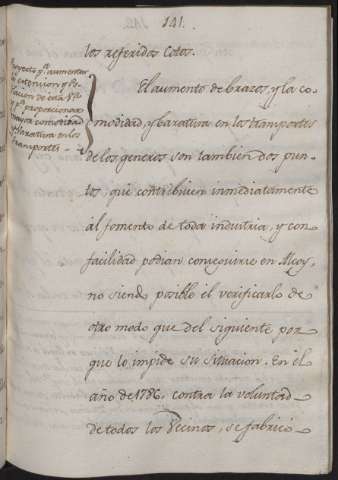 141.
los referidos Cotos.
Proyecto pa. aumentar
la extension y Po-
lacion de esta Va.
y pa. proporcionar
mayor comodidad
y barativa en los
transportes -
El aumento de brazos, y la co-
modidad, y barattiva en los transportes
de los generos son tambien dos pun-
tos, que contribuien inmediatamente
al fomento de toda industria, y con
facilidad podian conseguirse en Alcoy,
no siendo posible el verificarlo de
otro modo que del siguiente por
que lo impide su situacion. En el
año de 1786, contra la voluntad
de todos los Vecinos, se fabricó